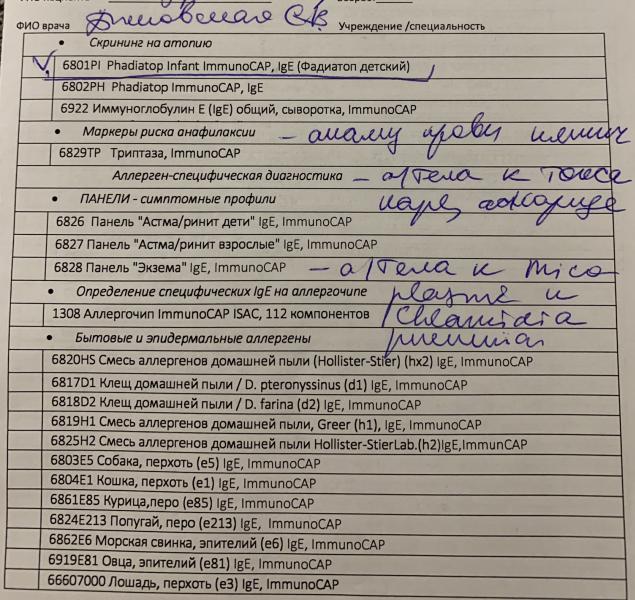 ФИО врача
Учреждение /специальность
• Скрининг на атопию
6801PI Phadiatop Infant ImmunoCAP, IgE (Фадиатоп детский)
6802PH Phadiatop ImmunoCAP, IgE
6922 Иммуноглобулин E (IgE) общий, сыворотка, ImmunoCAP
• Маркеры риска анафилаксии – анализ крови клинич
6829TP Триптаза, ImmunoCAP
Аллерген-специфическая диагностика – а/тела к токсо
• ПАНЕЛИ - симптомные профили кару, аскариде
6826 Панель "Астма/ринит дети" IgE, ImmunoCAP
6827 Панель "Астма/ринит взрослые" IgE, ImmunoCAP
6828 Панель "Экзема" IgE, ImmunoCAP – а/тела к mico
• Определение специфических IgE на аллергочипе plasme и
1308 Аллергочип ImmunoCAP ISAC, 112 компонентов Chlamidia
• Бытовые и эпидермальные аллергены
6820HS Смесь аллергенов домашней пыли (Hollister-Stier) (hx2) IgE, ImmunoCAP
6817D1 Клещ домашней пыли / D. pteronyssinus (d1) IgE, ImmunoCAP
6818D2 Клещ домашней пыли / D. farina (d2) IgE, ImmunoCAP
6819H1 Смесь аллергенов домашней пыли, Greer (h1), IgE, ImmunoCAP
6825H2 Смесь аллергенов домашней пыли Hollister-StierLab.(h2)IgE,ImmunCAP
6803E5 Собака, перхоть (e5) IgE, ImmunoCAP
6804E1 Кошка, перхоть (e1) IgE, ImmunoCAP
6861E85 Курица,перо (e85) IgE, ImmunoCAP
6824E213 Попугай, перо (e213) IgE, ImmunoCAP
6862E6 Морская свинка, эпителий (e6) IgE, ImmunoCAP
6919E81 Овца, эпителий (e81) IgE, ImmunoCAP
66607000 Лошадь, перхоть (e3) IgE, ImmunoCAP